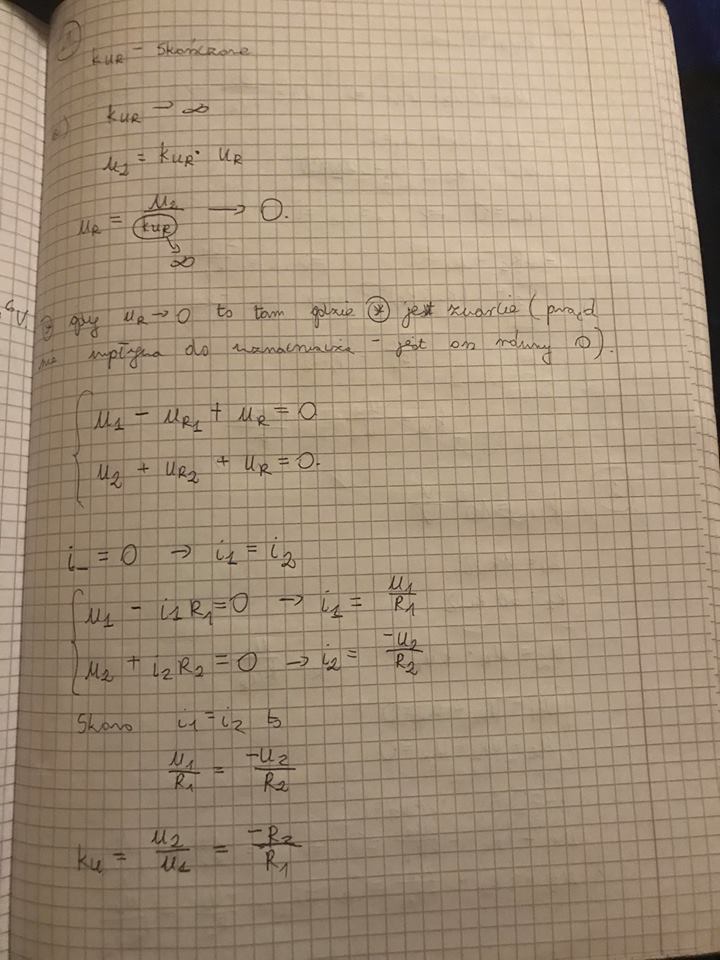 1
kuR - skończone
a) kuR → ∞
u2 = kuR · uR
uR = u2 / kuR → 0.
∞
* gdy uR → 0 to tam gdzie * jest zwarcie (prąd
nie wpływa do wzmacniacza - jest on równy 0).
u1 - uR1 + uR = 0
u2 + uR2 + uR = 0.
i_ = 0 → i1 = i2
u1 - i1 R1 = 0 → i1 = u1 / R1
u2 + i2 R2 = 0 → i2 = -u2 / R2
Skoro i1 = i2 to
u1 / R1 = -u2 / R2
ku = u2 / u1 = -R2 / R1